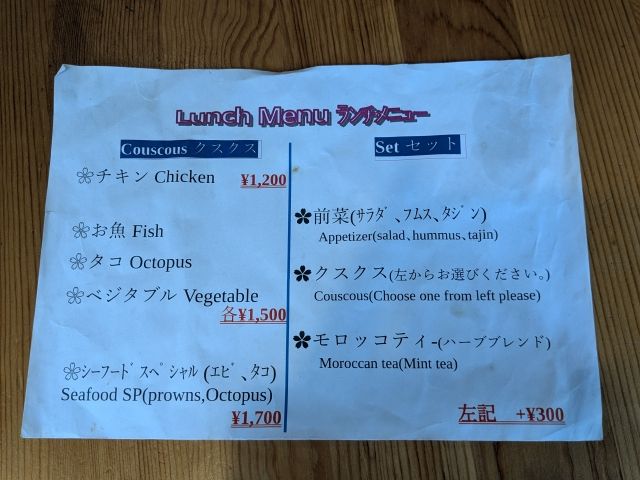 Lunch Menu ランチメニュー
Couscous クスクス
チキン Chicken ¥1,200
お魚 Fish
タコ Octopus
ベジタブル Vegetable
各¥1,500
シーフードスペシャル (エビ、タコ)
Seafood SP(prowns,Octopus)
¥1,700
Set セット
前菜(サラダ、フムス、タジン)
Appetizer(salad、hummus、tajin)
クスクス(左からお選びください。)
Couscous(Choose one from left please)
モロッコティ-(ハーブブレンド)
Moroccan tea(Mint tea)
左記 +¥300